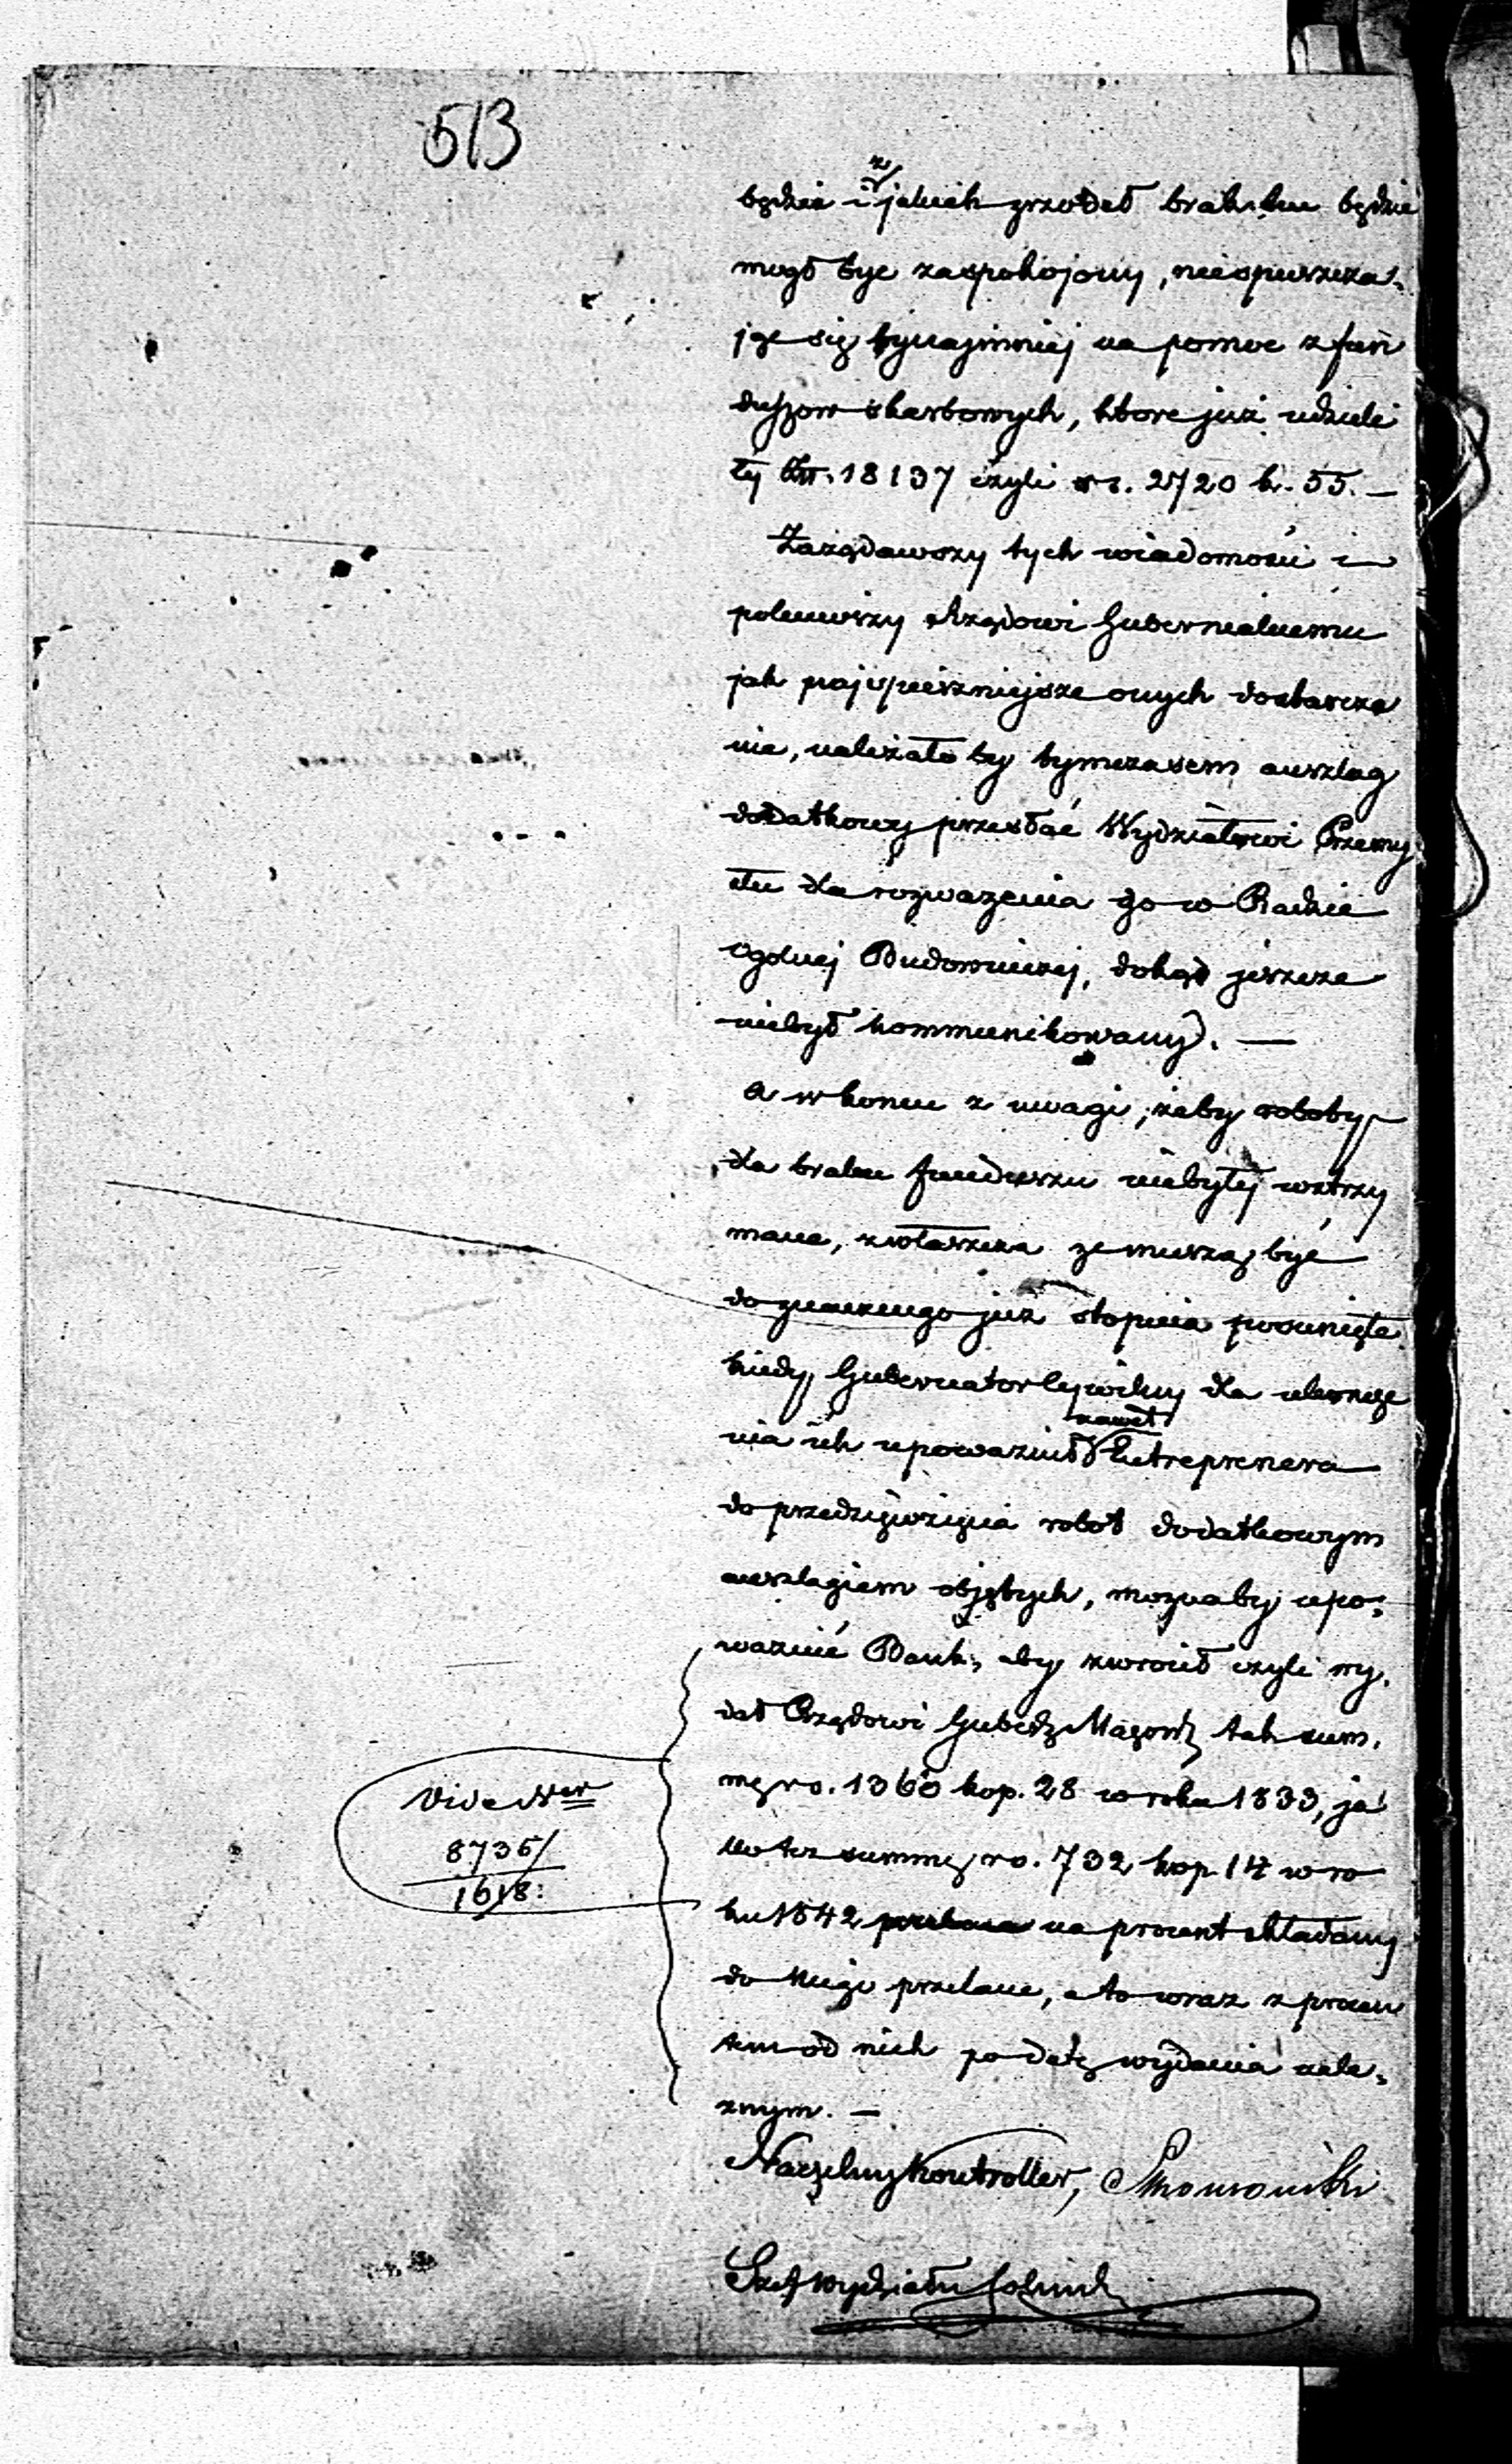 513
będzie i z jakich zrzodeł brak ten będzie
mogł być zaspokojony, niespuszcza-
jąc się bynajmniej na pomoc z fun
duszow skarbowych, ktore już udzieli
ły Złt. 18137 czyli rs. 2720 k. 55. —
Zażądawszy tych wiadomości i
poleciwszy Rządowi Gubernialnemu
jak najspieszniejsze onych dostarcze
nie, należało by tymczasem anszlag
dodatkowy przesłać Wydziałowi Przemy
słu dla rozważenia go w Radzie
Ogolnej Budowniczej, dokąd jeszcze
niebył kommunikowany). —
a w koncu z uwagi, żeby roboty
dla braku funduszu niebyły wstrzy
mane, zwłaszcza że muszą być
do znacznego już stopnia posunięte
kiedy Gubernator Cywilny dla
nia ich upoważnił nawet Entreprenera
do przedsięwzięcia robot dodatkowym
anszlagiem objętych, możnaby upo-
ważnić Bank, aby zwrocił czyli wy-
dał Rządowi Gub. Mazow. tak sum-
mę rs. 1360 kop. 28 w roku 1833, ja
ko też summę rs. 732 kop 14 w ro
ku 1842 na procent składany
do niego przelane, a to wraz z procen
tem od nich po datę wydania nale-
żnym. —
Vide Ner
8735/
1618:
Naczelny Kontroller,
Szef Wydziału